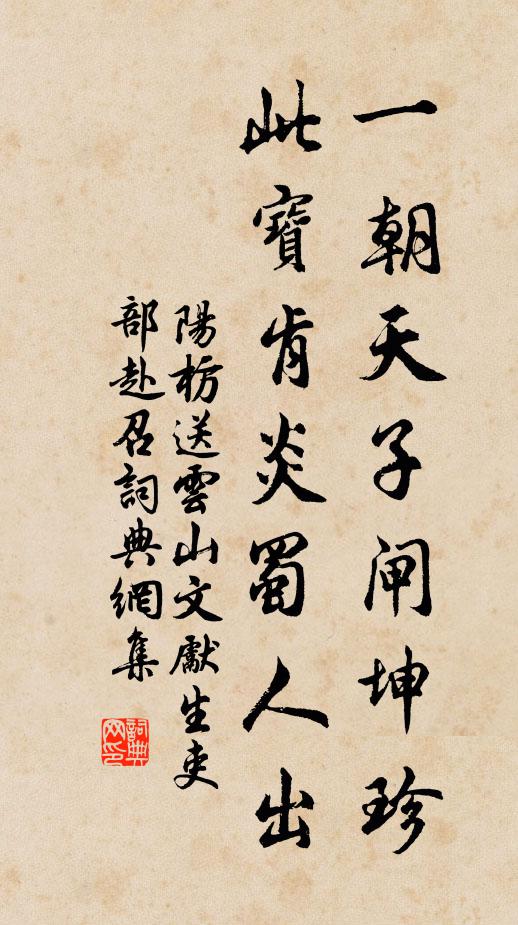 一朝天子闸坤珍
此寶肯炎蜀人出
陽枋送雲山文獻生吏
部赴召詞典網集
詞典
网印